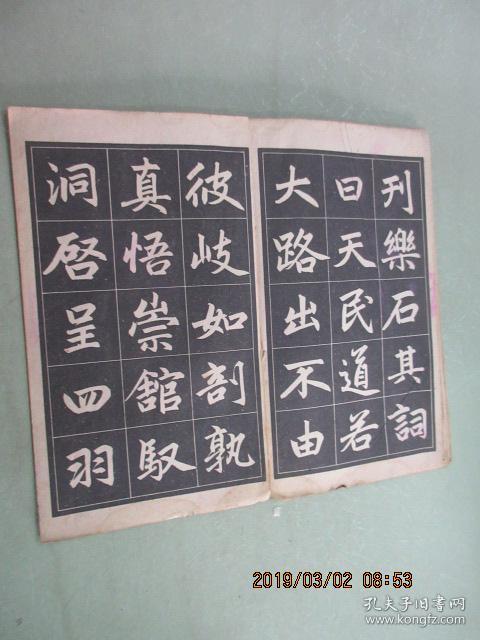 刊樂石其詞
曰天民道若
大路出不由
彼歧如剖孰
真悟崇館馭
洞啓呈四羽
2019/03/02 08:53
孔夫子旧書网
www.kongfz.com